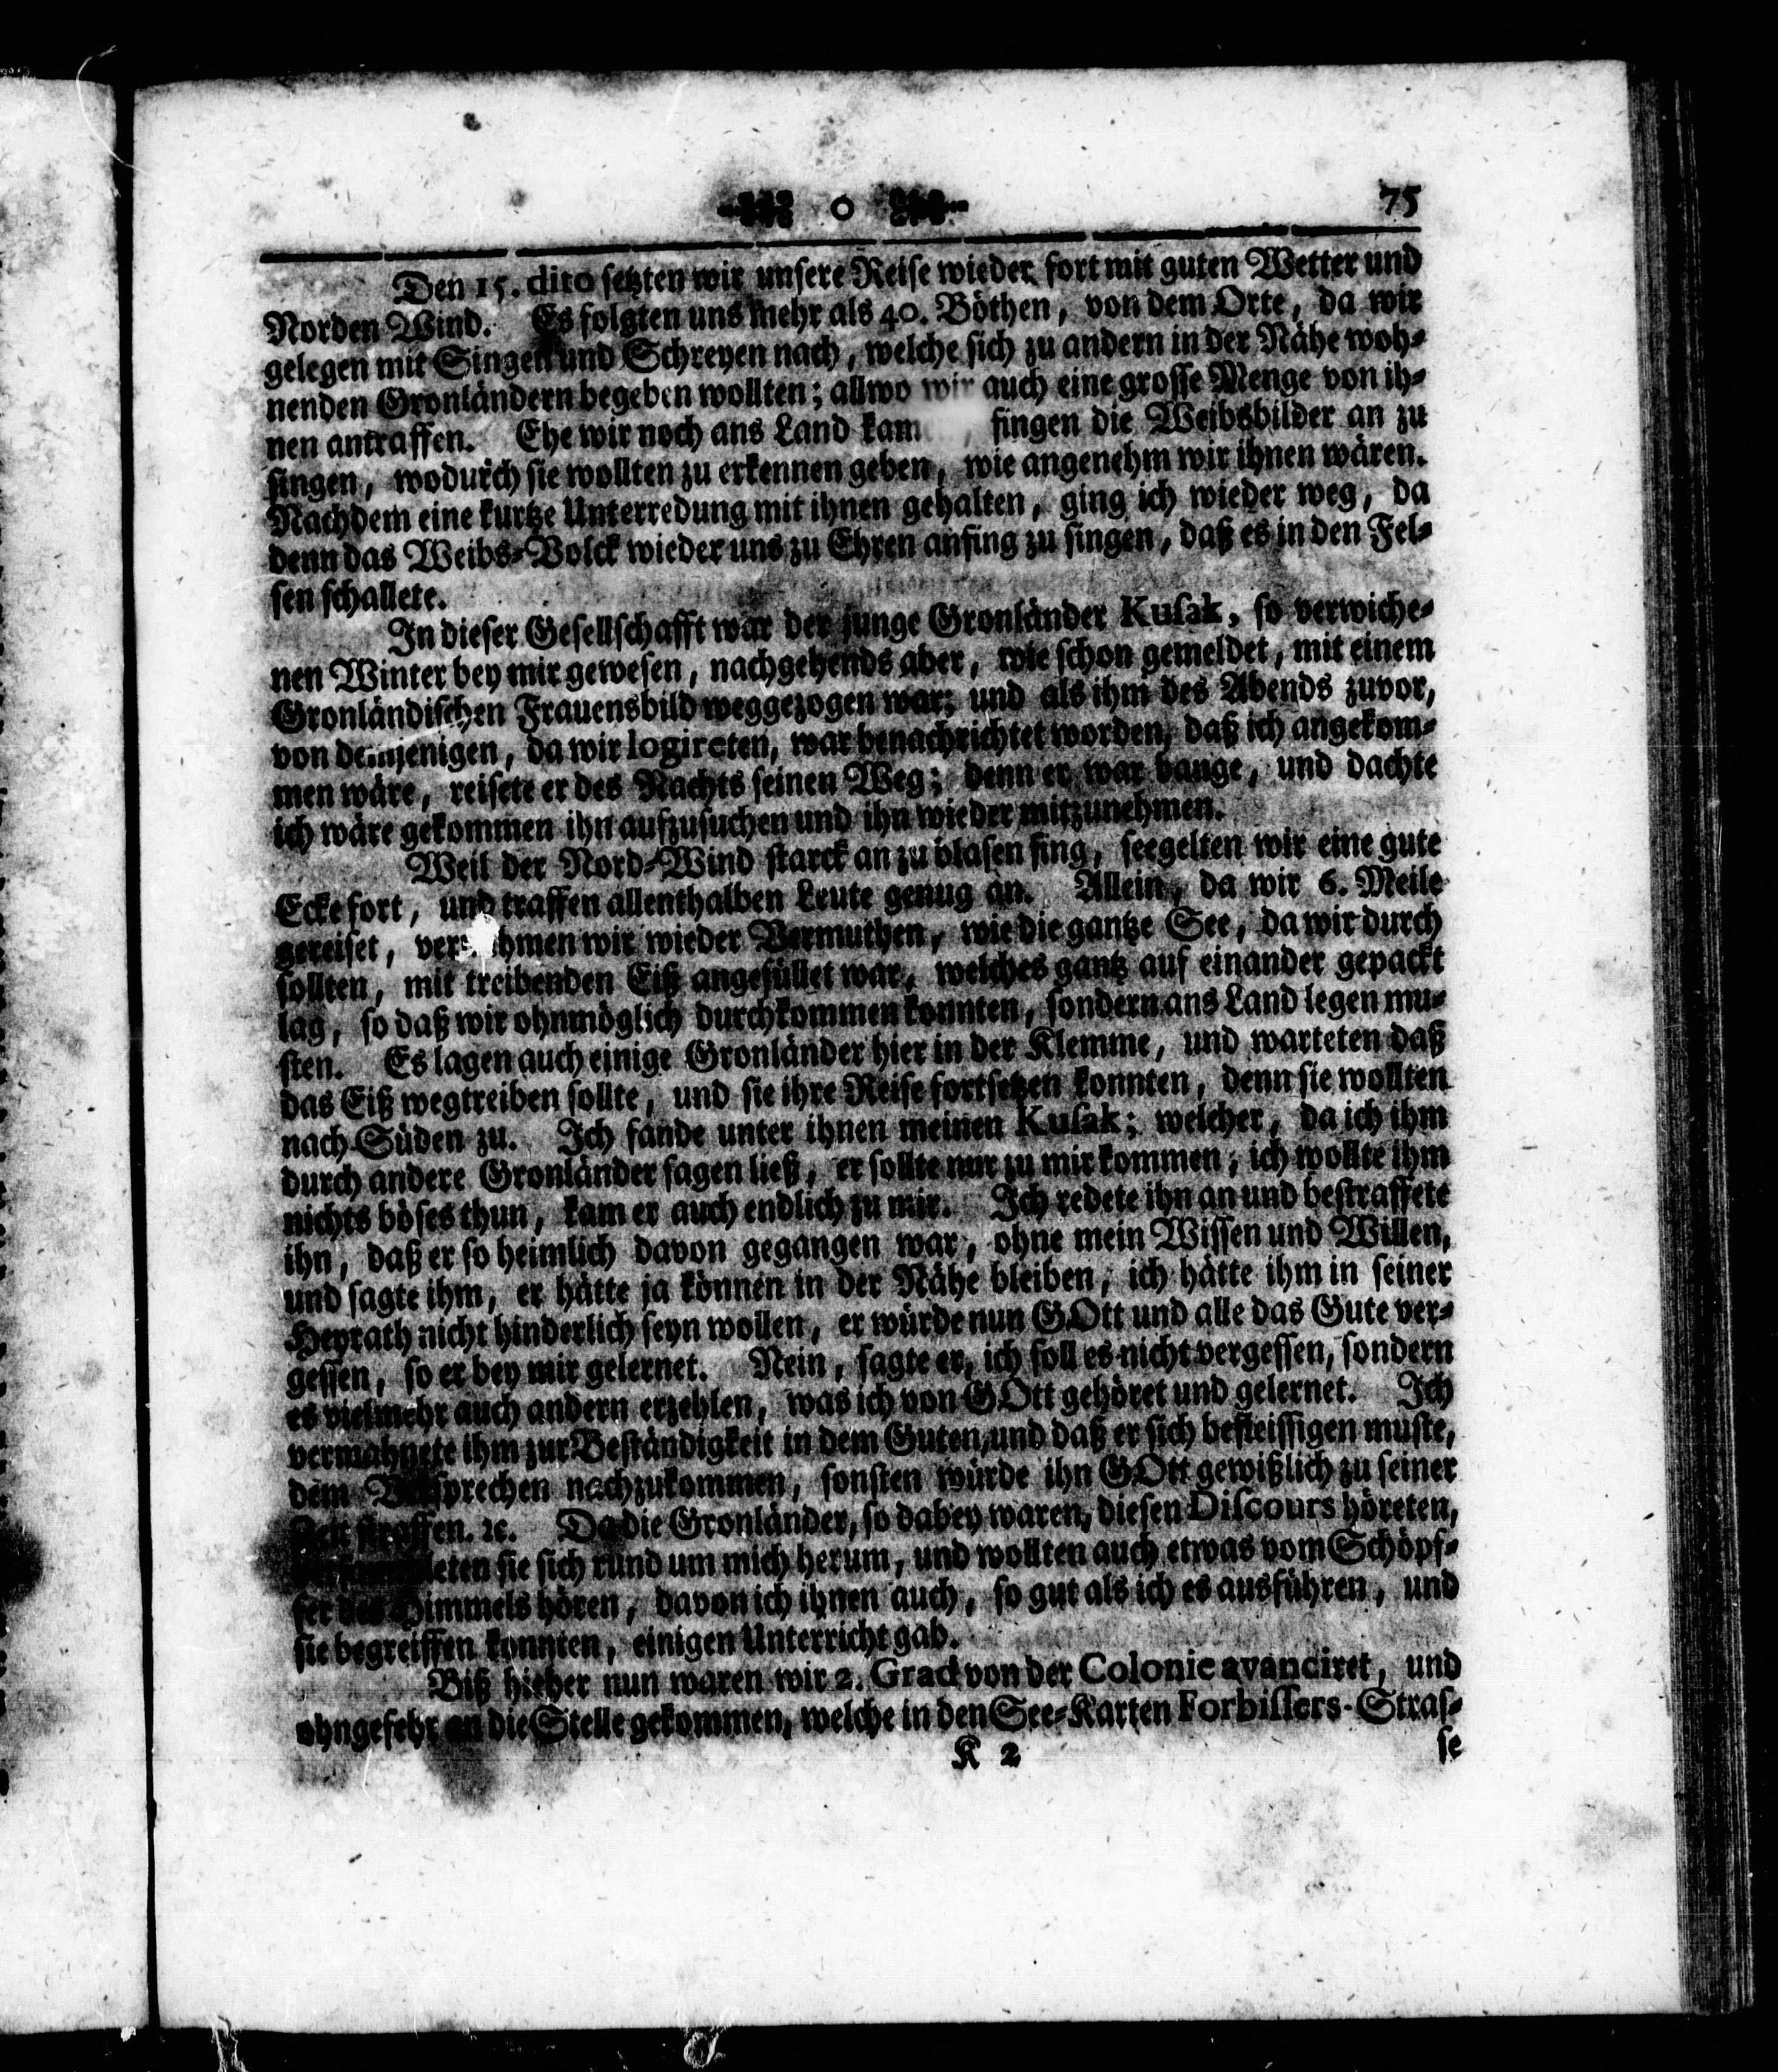 o 75
Den 15. dito setzten wir unsere Reise wieder fort mit guten Wetter und
Norden Wind. Es folgten uns mehr als 40. Böthen, von dem Orte, da wir
gelegen mit Singen und Schreyen nach, welche sich zu andern in der Nähe woh-
nenden Gronländern begeben wollten; allwo wir auch eine grosse Menge von ih-
nen antraffen. Ehe wir noch ans Land fingen die Weibsbilder an zu
singen, wodurch sie wollten zu erkennen geben, wie angenehm wir ihnen wären.
Nachdem eine kurtze Unterredung mit ihnen gehalten, ging ich wieder weg, da
denn das Weibs-Volck wieder uns zu Ehren anfing zu singen, daß es in den Fel-
sen schallete.
In dieser Gesellschafft war der junge Gronländer Kusak, so verwiche-
nen Winter bey mir gewesen, nachgehends aber, wie schon gemeldet, mit einem
Gronländischen Frauensbild weggezogen war; und als ihm des Abends zuvor,
von demjenigen, da wir logireten, war benachrichtet worden, daß ich angekom-
men wäre, reisete er des Nachts seinen Weg; denn er war bange, und dachte
ich wäre gekommen ihn aufzusuchen und ihn wieder mitzunehmen.
Weil der Nord-Wind starck an zu blasen fing, seegelten wir eine gute
Ecke fort, und traffen allenthalben Leute genug an. Allein, da wir 6. Meile
gereiset, wir wieder Vermuthen, wie die gantze See, da wir durch
sollten, mit treibenden Eiß angefüllet war, welches gantz auf einander gepackt
lag, so daß wir ohnmöglich durchkommen konnten, sondern ans Land legen mu-
sten. Es lagen auch einige Gronländer hier in der Klemme, und warteten daß
das Eiß wegtreiben sollte, und sie ihre Reise fortsetzen konnten, denn sie wollten
nach Süden zu. Ich fande unter ihnen meinen Kusak; welcher, da ich ihm
durch andere Gronländer sagen ließ, er sollte nur zu mir kommen, ich wollte ihm
nichts böses thun, kam er auch endlich zu mir. Ich redete ihn an und bestraffete
ihn, daß er so heimlich davon gegangen war, ohne mein Wissen und Willen,
und sagte ihm, er hätte ja können in der Nähe bleiben, ich hätte ihm in seiner
Heyrath nicht hinderlich seyn wollen, er würde nun GOtt und alle das Gute ver-
gessen, so er bey mir gelernet. Nein, sagte er, ich soll es nicht vergessen, sondern
es vielmehr auch andern erzehlen, was ich von GOtt gehöret und gelernet. Ich
vermahnete ihm zur Beständigkeit in dem Guten, und daß er sich befleissigen muste,
dem Versprechen nachzukommen, sonsten würde ihn GOtt gewißlich zu seiner
straffen. ꝛc. Da die Gronländer, so dabey waren, diesen Discours höreten,
sie sich rund um mich herum, und wollten auch etwas vom Schöpf-
fer des Himmels hören, davon ich ihnen auch, so gut als ich es ausführen, und
sie begreiffen konnten, einigen Unterricht gab.
Biß hieher nun waren wir 2. Grad von der Colonie avanciret, und
ohngefehr an die Stelle gekommen, welche in den See-Karten Forbissers-Stras-
K 2 se